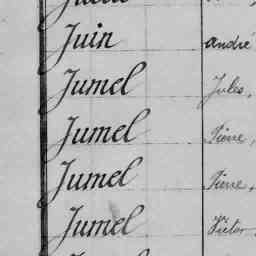 Juin André
Jumel Jules,
Jumel Pierre,
Jumel Pierre,
Jumel Victor,